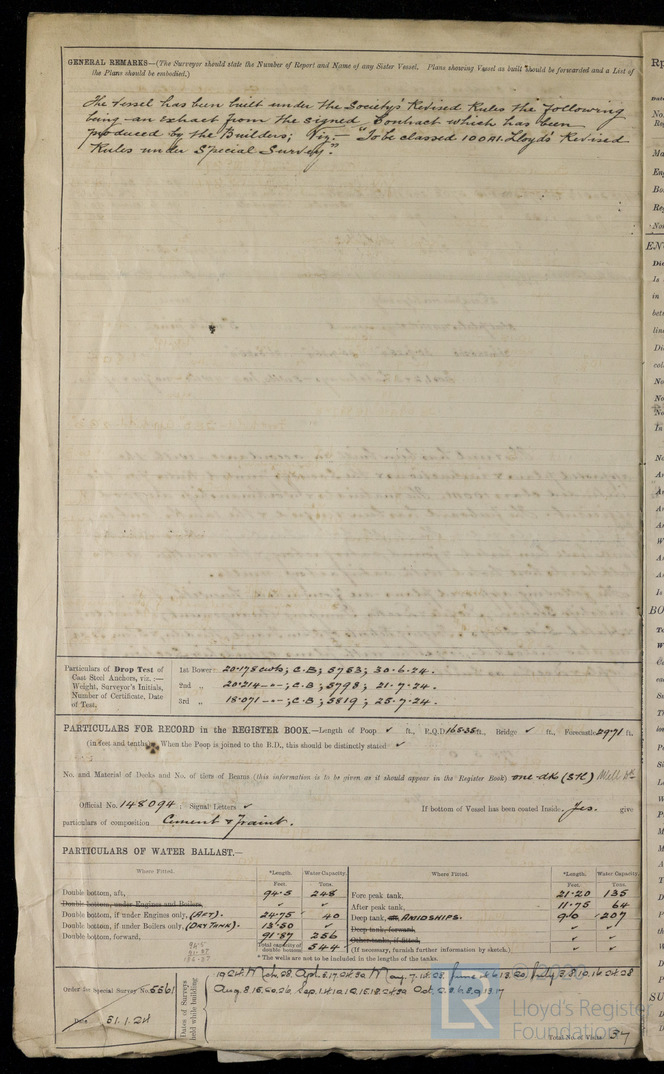 GENERAL REMARKS—(The Surveyor should state the Number of Report and Name of any Sister Vessel. Plans showing Vessel as built should be forwarded and a List of
the Plans should be embodied.)
The Vessel has been built under the Society's Revised Rules the following
being an extract from the signed Contract which has been
produced by the Builders; Viz:- "To be classed 100A1. Lloyds' Revised
Rules under Special Survey".
Particulars of Drop Test of
Cast Steel Anchors, viz. :—
Weight, Surveyor's Initials,
Number of Certificate, Date
of Test.
1st Bower 20·178 cwts; C.B; 5753; 30·6·24.
2nd „ 20·214 -"-; C.B; 5798; 21·7·24.
3rd „ 18·071 -"-; C.B; 5819; 25·7·24.
PARTICULARS FOR RECORD in the REGISTER BOOK.—Length of Poop ✓ ft., R.Q.D. 165·35 ft., Bridge ✓ ft., Forecastle 29·71 ft.
(in feet and tenths). When the Poop is joined to the B.D., this should be distinctly stated ✓
No. and Material of Decks and No. of tiers of Beams (this information is to be given as it should appear in the Register Book) one dk (Stl) Well dk
Official No. 148094 Signal Letters ✓ If bottom of Vessel has been coated Inside Yes. give
particulars of composition Cement & Paint.
PARTICULARS OF WATER BALLAST.—
Where Fitted. *Length. Water Capacity. Where Fitted. *Length. Water Capacity.
Feet. Tons. Feet. Tons.
Double bottom, aft, 94·5 248 Fore peak tank, 21·20 135
Double bottom, under Engines and Boilers, ✓ ✓ After peak tank, 11·75 64
Double bottom, if under Engines only, (AFT). 24·75 40 Deep tank, AMIDSHIPS. 9·0 207
Double bottom, if under Boilers only, (DRY TANK). 13·50 ✓ Deep tank, forward, ✓ ✓
Double bottom, forward, 91·87 256 Other tanks, if fitted, ✓ ✓
Total capacity of double bottom 544 (If necessary, furnish further information by sketch.) ✓ ✓
* The wells are not to be included in the lengths of the tanks.
Order for Special Survey No. 5561
Date 31.1.24
Dates of Surveys
held while building
1924 Mch. 28. Apl. 8. 17. 24. 30 May. 7. 15. 28. June 4. 6. 13. 20. July 3. 8. 10. 16. 24. 28
Total No. of Visits 37
LR
Lloyd's Register
Foundation